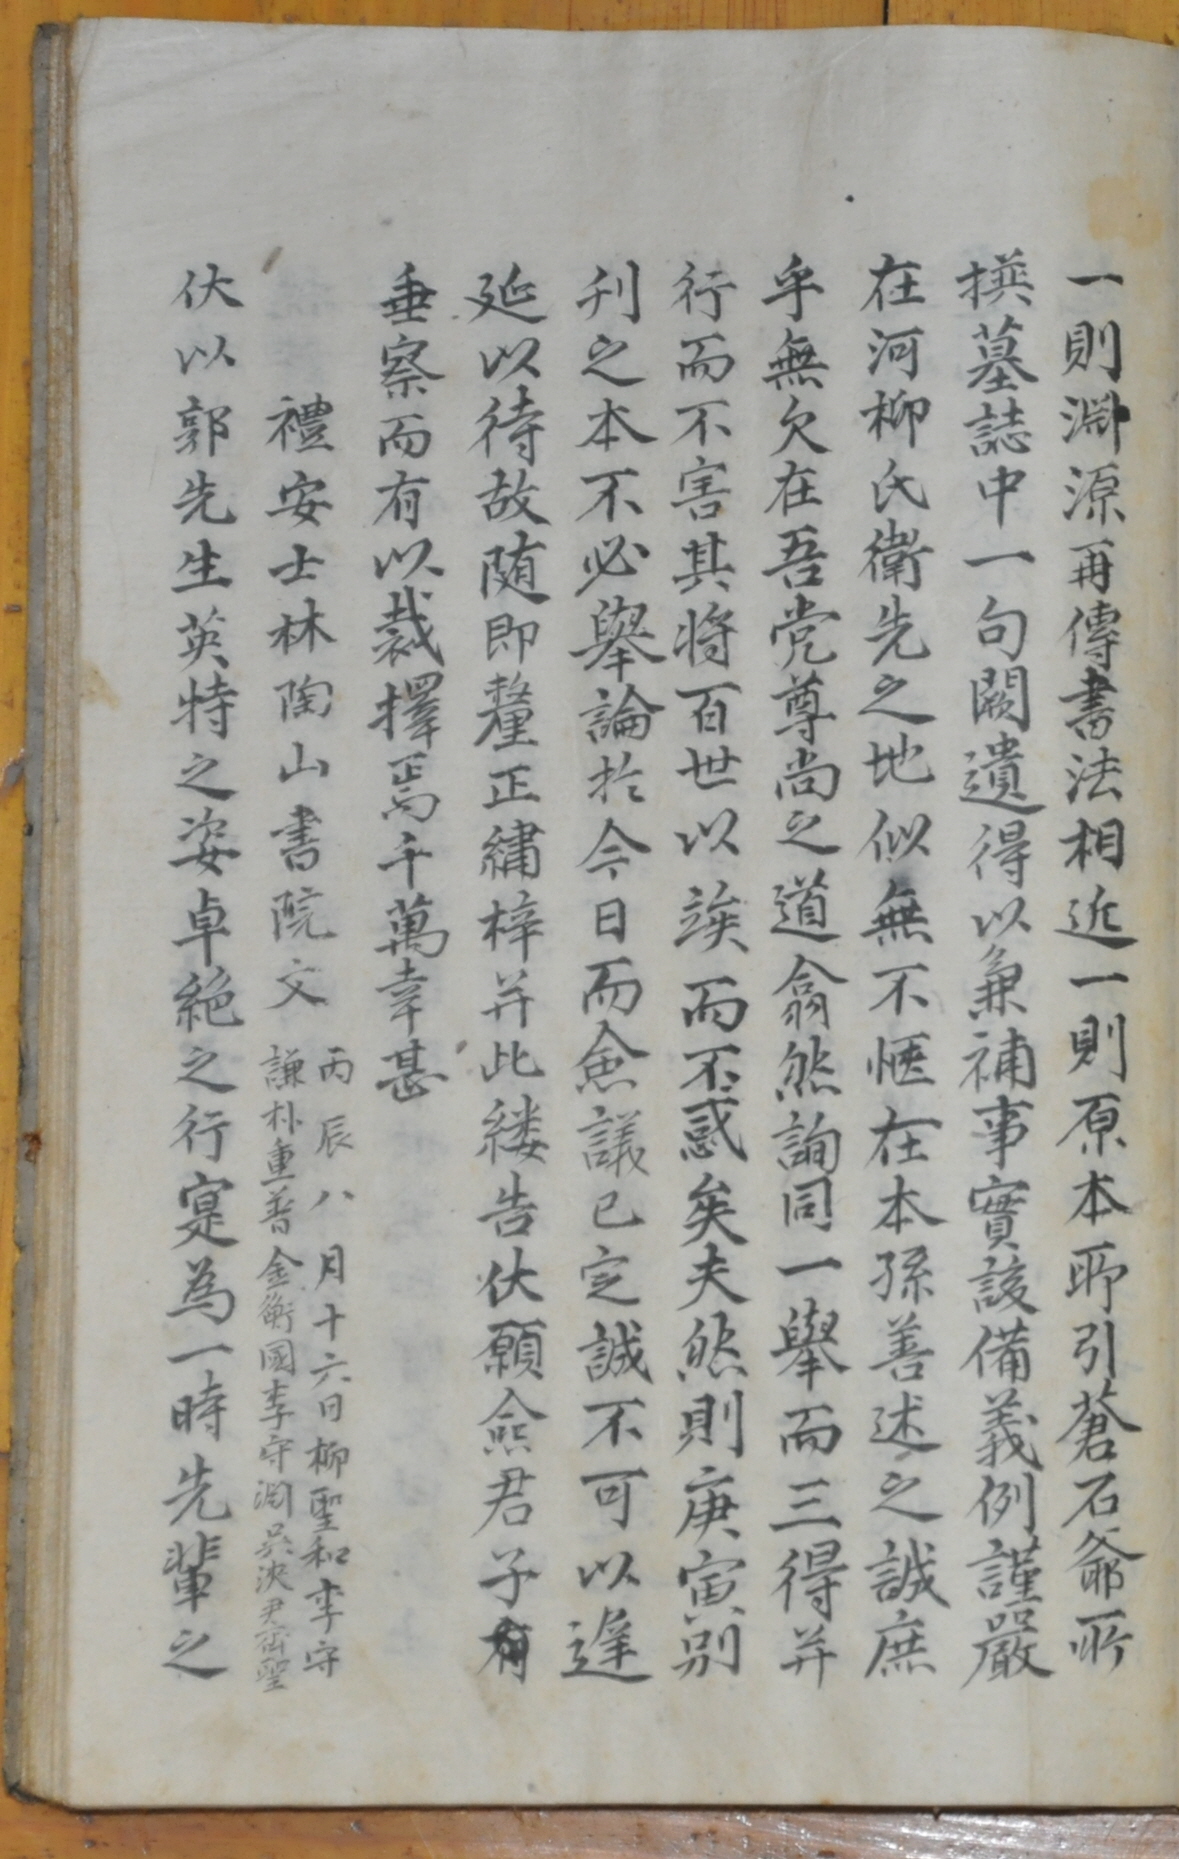 一則淵源再傳書法相近一則原本所引蒼石爺所
撰墓誌中一句闕遺得以兼補事實該備義例謹嚴
在河柳氏衛先之地似無不愜在本孫善述之誠庶
乎無欠在吾党尊尚之道翕然詢同一舉而三得并
行而不害其將百世以俟而不惑矣夫然則庚寅別
刊之本不必舉論於今日而僉議已定誠不可以遲
延以待故随即釐正繡梓并此縷告伏願僉君子有
垂察而有以裁擇焉千萬幸甚
禮安士林陶山書院文
丙辰八月十六日柳聖和李守
謙朴重普金衡國李守淵吳浹尹齊聖
伏以郭先生英特之姿卓絶之行寔為一時先輩之